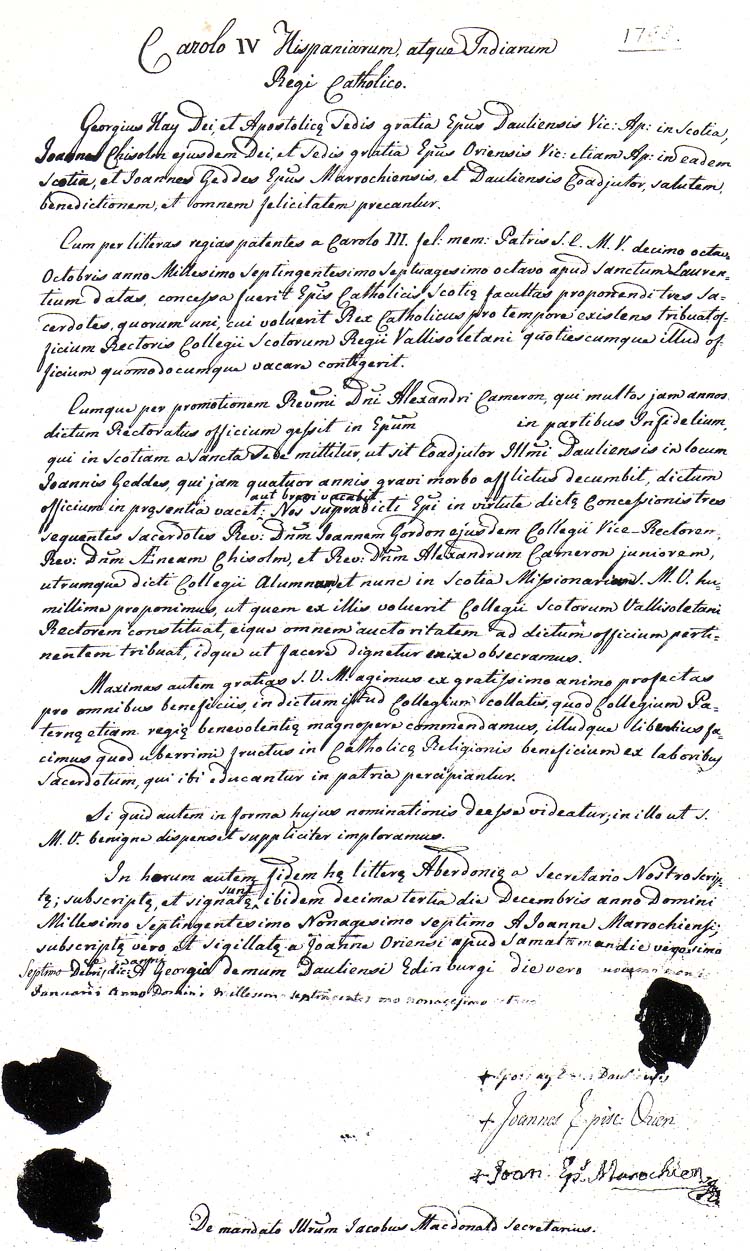 Carolo IV Hispaniarum, atque Indiarum
Regi Catholico.
Georgius Hay Dei, et Apostolicę Sedis gratia Epūs Dauliensis Vic: Ap: in Scotia,
Joannes Chisolm ejusdem Dei, et Sedis gratia Epūs Oriensis Vic: etiam Ap: in eadem
Scotia, et Joannes Geddes Epūs Marrochiensis, et Dauliensis Coadjutor, salutem,
benedictionem, et omnem felicitatem precantur.
Cum per litteras regias patentes a Carolo III. fel: mem: Patris S. C. M. V. decimo octavo
Octobris anno Millesimo Septingentesimo Septuagesimo octavo apud Sanctum Lauren-
tium datas, concessa fuerit Epīs Catholicis Scotię facultas proponendi tres Sa-
cerdotes, quorum uni, cui voluerit Rex Catholicus pro tempore existens tribuat of-
ficium Rectoris Collegii Scotorum Regii Vallisoletani quotiescumque illud of-
ficium quomodocumque vacare contigerit.
Cumque per promotionem Revm̄i Dn̄i Alexandri Cameron, qui multos jam annos
dictum Rectoratus officium gessit in Epūm in partibus Infidelium,
qui in Scotiam a Sancta Sede mittitur, ut sit Coadjutor Illm̄i Dauliensis in locum
Joannis Geddes, qui jam quatuor annis gravi morbo afflictus decumbit, dictum
aut brevi vacabit
officium in pręsentia vacet; Nos supradicti Epi in virtute dictę Concessionis tres
sequentes Sacerdotes Rev: Dnum Joannem Gordon ejusdem Collegii Vice-Rectorem,
Rev: Dnum Æneam Chisolm, et Rev: Dnum Alexandrum Cameron juniorem,
utrumque dicti Collegii Alumnum, et nunc in Scotia Missionarium S. M. V. hu-
millime proponimus, ut quem ex illis voluerit Collegii Scotorum Vallisoletani
Rectorem constituat, eique omnem auctoritatem ad dictum officium perti-
nentem tribuat, idque ut facere dignetur enixe obsecramus.
Maximas autem gratias S. V. M. agimus ex gratissimo animo profectas
pro omnibus beneficiis, in dictum istud Collegium collatis, quod Collegium Pa-
ternę etiam regię benevolentię magnopere commendamus, illudque libentius fa-
cimus quod uberrimi fructus in Catholicę Religionis beneficium ex laboribus
Sacerdotum, qui ibi educantur in patria percipiantur.
Si quid autem in forma hujus nominationis deesse videatur, in illo ut S.
M. V. benigne dispenset suppliciter imploramus.
In horum autem fidem hę litterę Aberdonię a Secretario Nostro scrip-
sunt
tę; subscriptę, et signatę ibidem decima tertia die Decembris anno Domini
Millesimo Septingentesimo Nonagesimo septimo A Joanne Marrochiensi;
subscriptę vero et sigillatę a Joanne Oriensi apud Samalaman die vigesimo
Septimo Decembris A Georgio demum Dauliensi Edinburgi die vero
Januarii Anno Domini Millesimo septingentesimo nonagesimo octavo
Dauliensis
+ Joannes Episc: Orien
+ Joan: Eps Marochien
De mandato Illrum Jacobus Macdonald Secretarius.